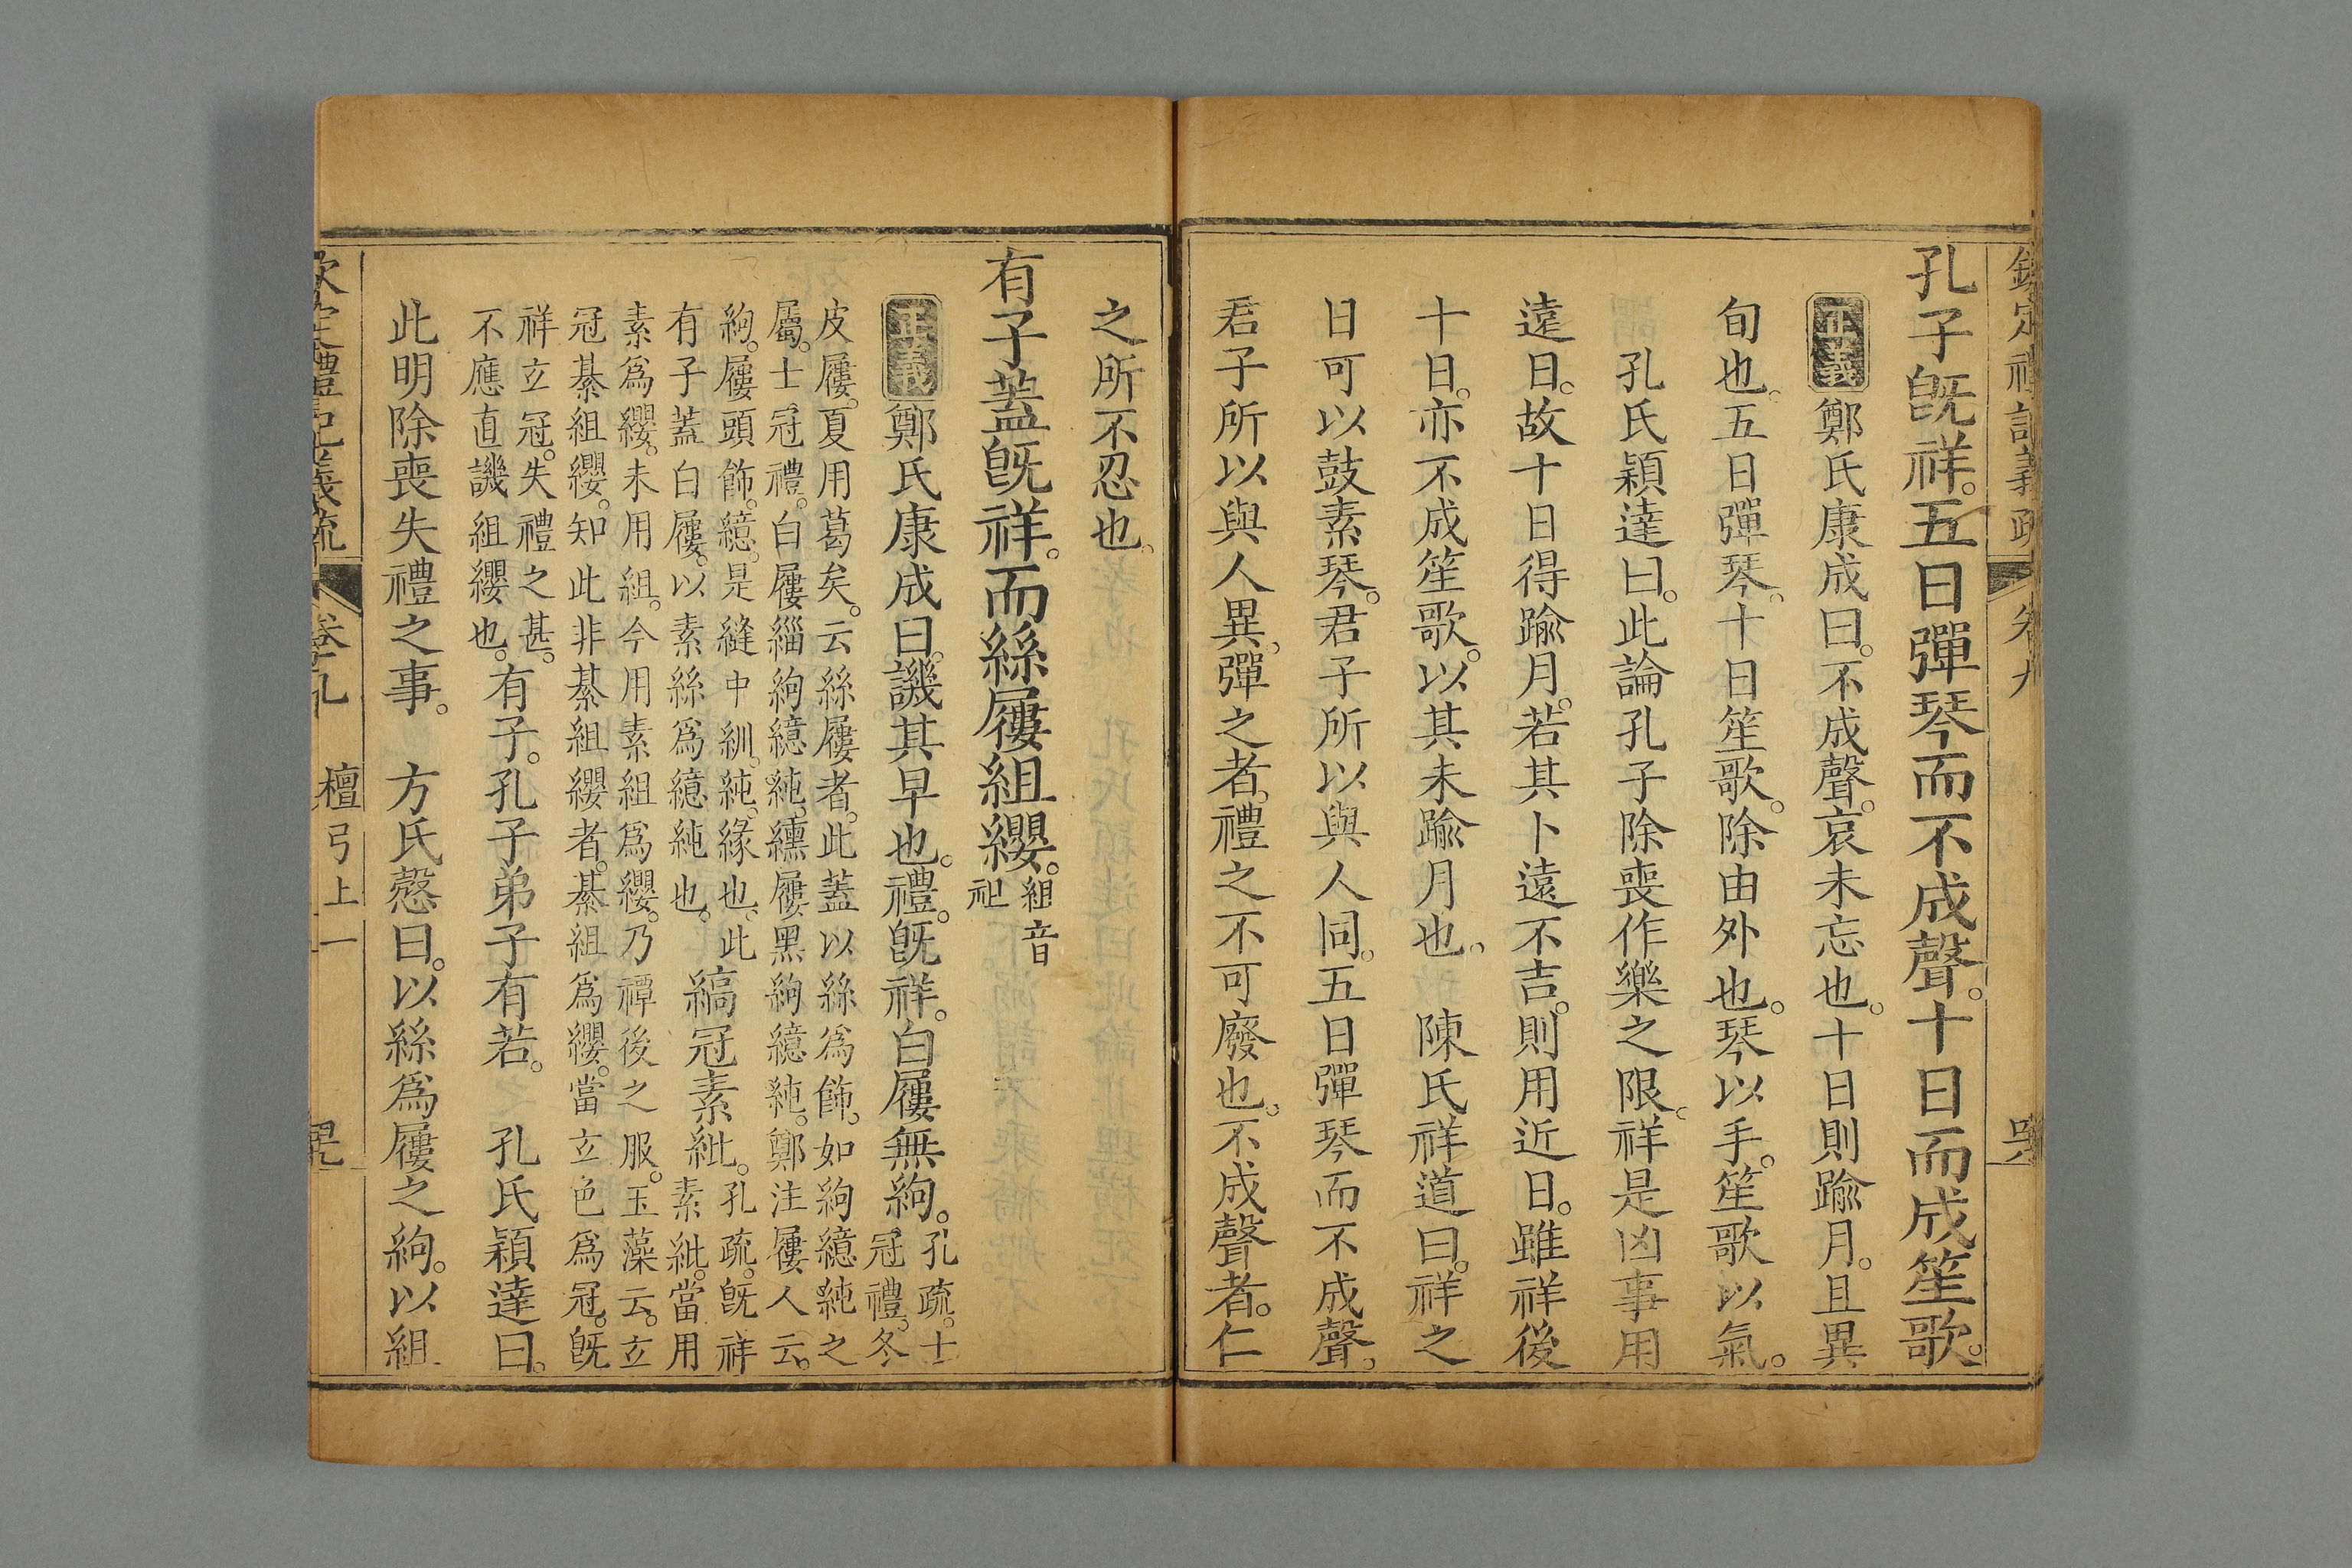 孔子旣祥。五日彈琴而不成聲。十日而成笙歌。
正義 鄭氏康成曰。不成聲。哀未忘也。十日則踰月。且異
旬也。五日彈琴。十日笙歌。除由外也。琴以手。笙歌以氣。
孔氏穎達曰。此論孔子除喪作樂之限。祥是凶事用
遠日。故十日得踰月。若其卜遠不吉。則用近日。雖祥後
十日。亦不成笙歌。以其未踰月也。 陳氏祥道曰。祥之
日可以鼓素琴。君子所以與人同。五日彈琴而不成聲。
君子所以與人異。彈之者。禮之不可廢也。不成聲者。仁
之所不忍也。
有子蓋旣祥。而絲屨組纓。組音
祖
正義 鄭氏康成曰。譏其早也。禮。旣祥。白屨無絇。孔疏。士
冠禮。冬
皮屨。夏用葛矣。云絲屨者。此蓋以絲爲飾。如絇繶純之
屬。士冠禮。白屨緇絇繶純。纁屨黑絇繶純。鄭注屨人云。
絇。屨頭飾。繶。是縫中紃。純。緣也。此
有子蓋白屨。以素絲爲繶純也。
縞冠素紕。孔疏。旣祥
素紕。當用
素爲纓。未用組。今用素組爲纓。乃禫後之服。玉藻云。玄
冠綦組纓。知此非綦組纓者。綦組爲纓。當玄色爲冠。旣
祥玄冠。失禮之甚。
不應直譏組纓也。
有子。孔子弟子有若。 孔氏穎達曰。
此明除喪失禮之事。 方氏慤曰。以絲爲屨之絇。以組
檀弓上一